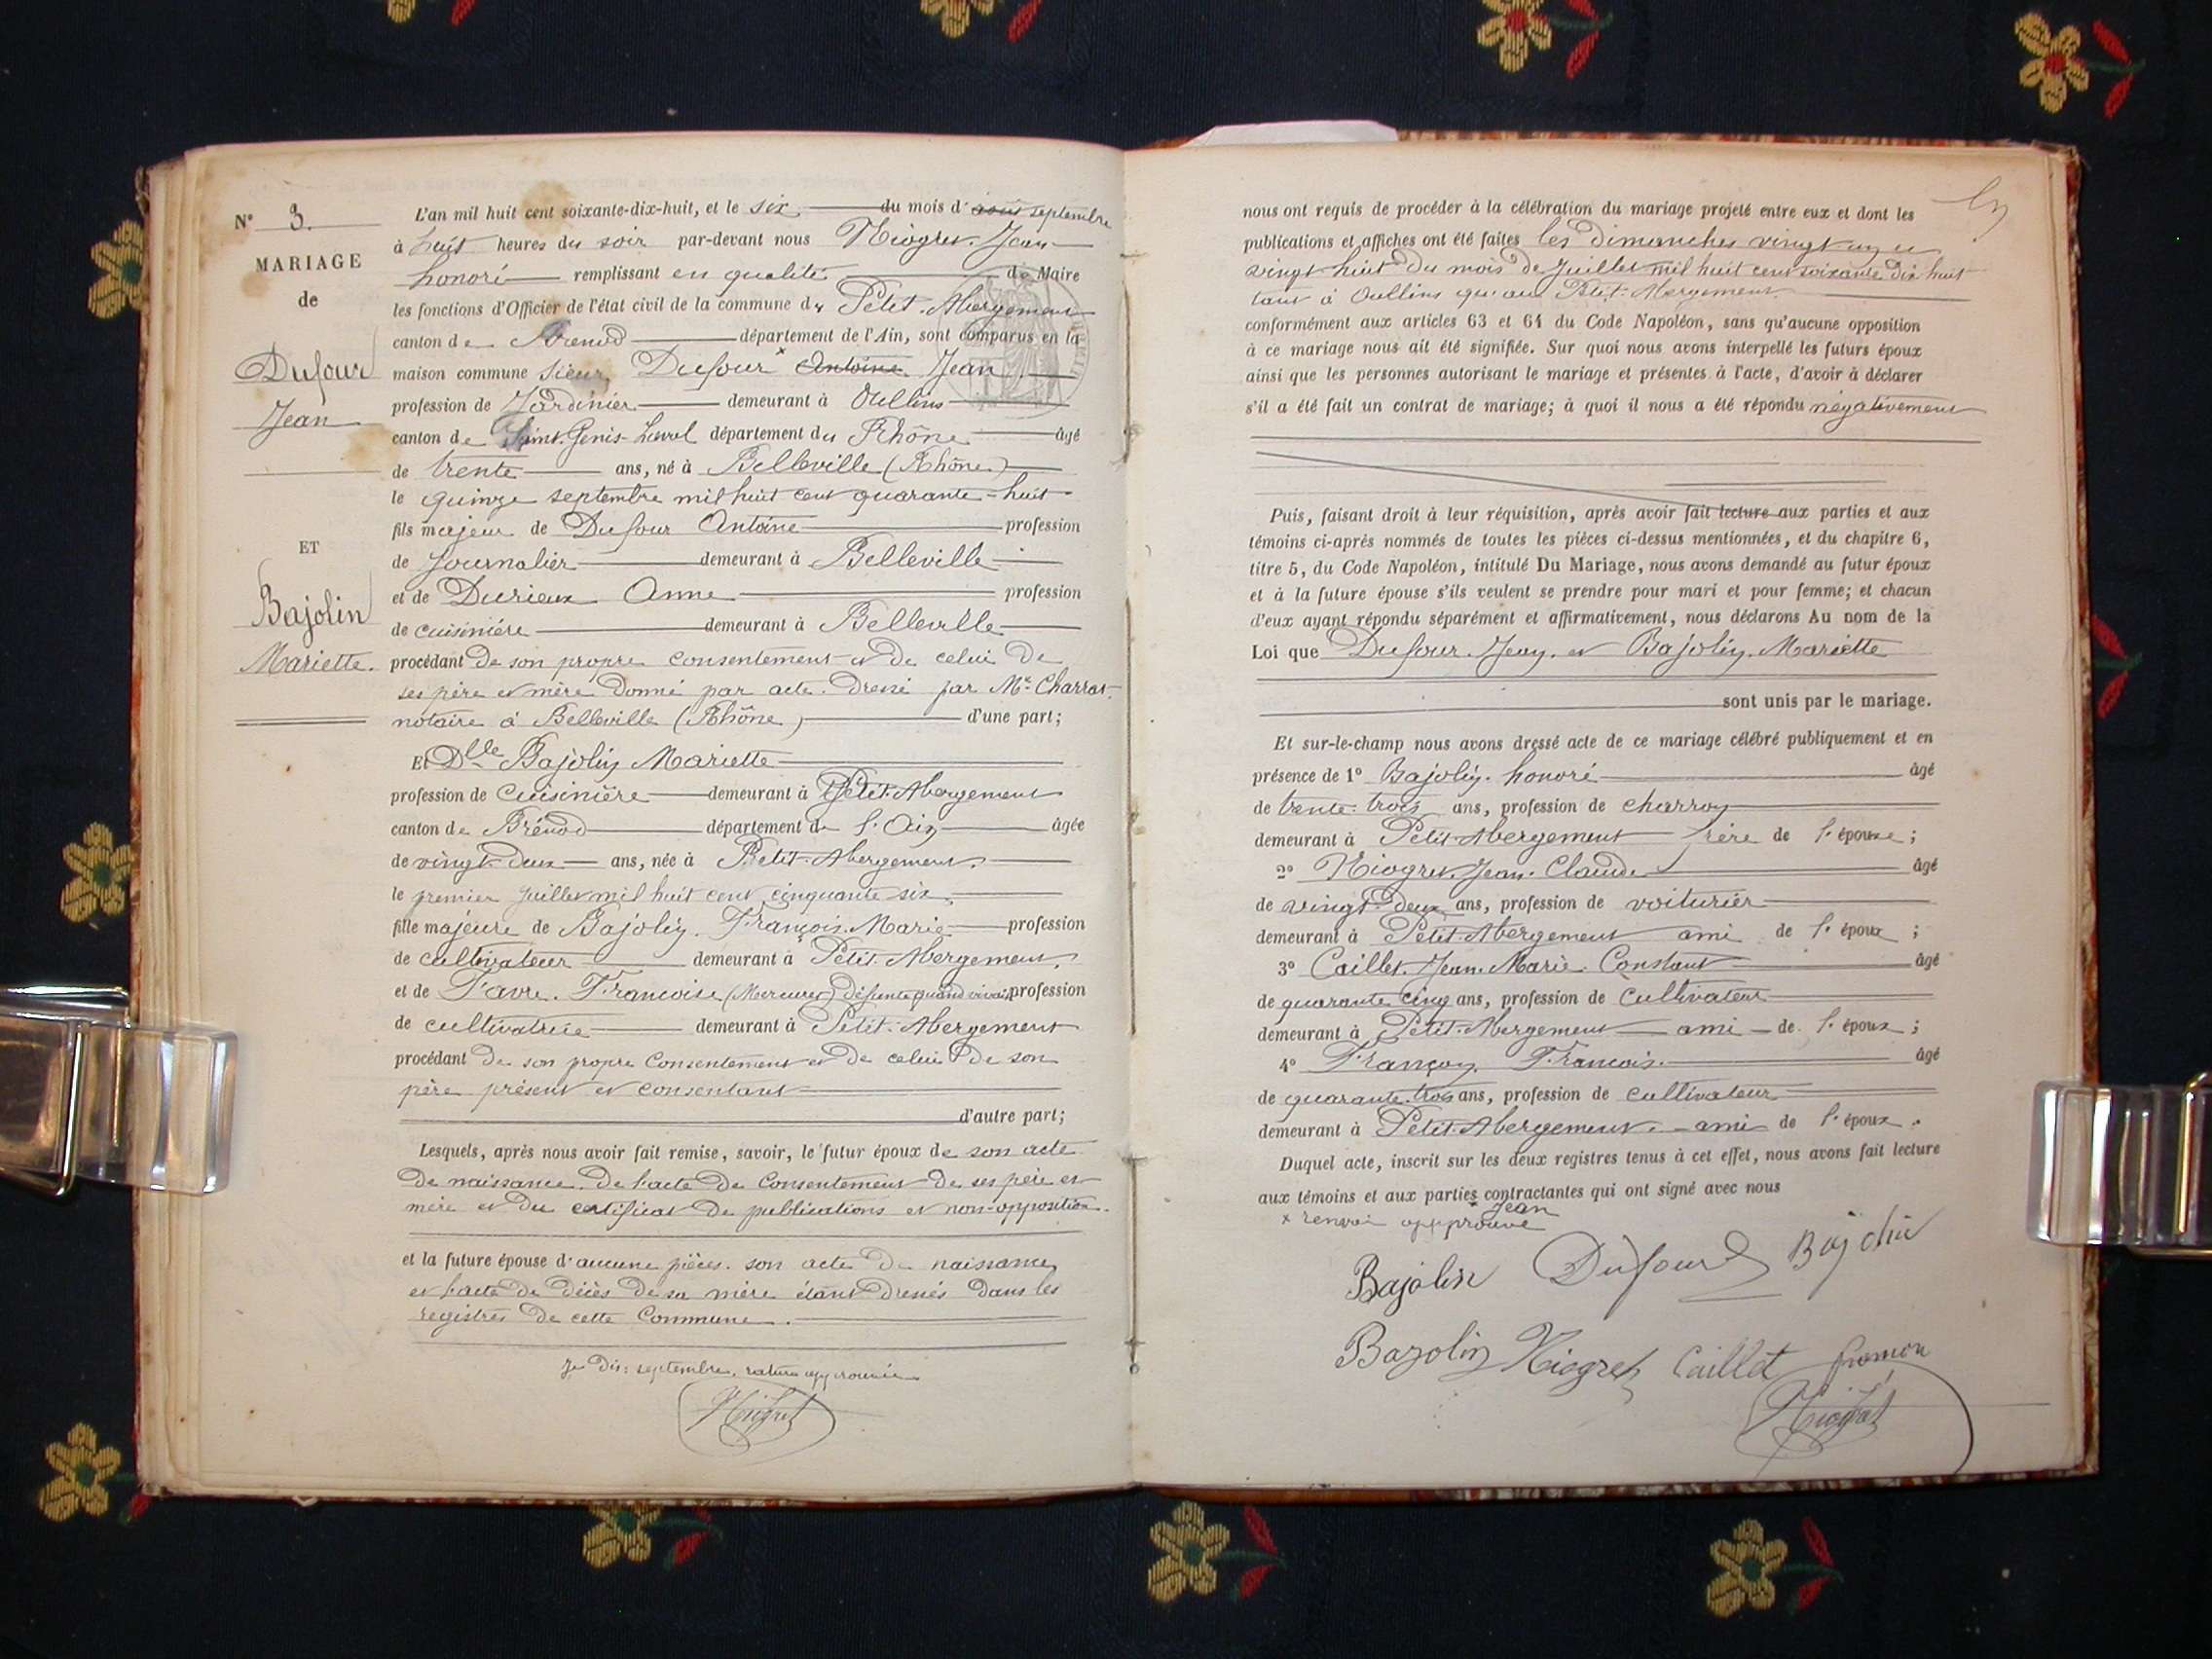 N° 3.
MARIAGE
de
Dufour
Jean
ET
Bajolin
Mariette.
L'an mil huit cent soixante-dix-huit, et le six du mois d' août septembre
à huit heures du soir par-devant nous Niogret Jean
honoré remplissant en qualité de Maire
les fonctions d'Officier de l'état civil de la commune du Petit-Abergement
canton de Brenod département de l'Ain, sont comparus en la
maison commune sieur Dufour x Antoine Jean
profession de Jardinier demeurant à Oullins
canton de Saint-Genis-Laval département du Rhône âgé
de trente ans, né à Belleville (Rhône)
le quinze septembre mil huit cent quarante-huit
fils majeur de Dufour Antoine profession
de journalier demeurant à Belleville
et de Durieux Anne profession
de cuisinière demeurant à Belleville
procédant de son propre consentement et de celui de
ses père et mère donné par acte dressé par Mr Charrat
notaire à Belleville (Rhône) d'une part;
Et Dlle Bajolin Mariette
profession de cuisinière demeurant à Petit-Abergement
canton de Brénod département de l'Ain âgée
de vingt-deux ans, née à Petit-Abergement
le premier juillet mil huit cent cinquante six
fille majeure de Bajolin François-Marie profession
de cultivateur demeurant à Petit-Abergement
et de Favre Françoise (Mercure) défunte quand vivait profession
de cultivatrice demeurant à Petit-Abergement
procédant de son propre consentement et de celui de son
père présent et consentant
d'autre part;
Lesquels, après nous avoir fait remise, savoir, le futur époux de son acte
de naissance. De l'acte de consentement de ses père et
mère et du certificat de publications et non-opposition.
et la future épouse d'aucune pièces. son acte de naissance
et l'acte de décès de sa mère étant dressés dans les
registres de cette Commune.
Je dis: septembre, rature approuvée
Niogret
nous ont requis de procéder à la célébration du mariage projeté entre eux et dont les
publications et affiches ont été faites les dimanches vingt-un et
vingt-huit du mois de juillet mil huit cent soixante dix huit
tant à Oullins qu'au Petit-Abergement
conformément aux articles 63 et 64 du Code Napoléon, sans qu'aucune opposition
à ce mariage nous ait été signifiée. Sur quoi nous avons interpellé les futurs époux
ainsi que les personnes autorisant le mariage et présentes à l'acte, d'avoir à déclarer
s'il a été fait un contrat de mariage; à quoi il nous a été répondu négativement
Puis, faisant droit à leur réquisition, après avoir fait lecture aux parties et aux
témoins ci-après nommés de toutes les pièces ci-dessus mentionnées, et du chapitre 6,
titre 5, du Code Napoléon, intitulé Du Mariage, nous avons demandé au futur époux
et à la future épouse s'ils veulent se prendre pour mari et pour femme; et chacun
d'eux ayant répondu séparément et affirmativement, nous déclarons Au nom de la
Loi que Dufour Jean et Bajolin Mariette
sont unis par le mariage.
Et sur-le-champ nous avons dressé acte de ce mariage célébré publiquement et en
présence de 1° Bajolin honoré âgé
de trente-trois ans, profession de charron
demeurant à Petit-Abergement frère de l'épouse;
2° Niogret Jean-Claude âgé
de vingt-deux ans, profession de voiturier
demeurant à Petit-Abergement ami de l'époux;
3° Caillet Jean-Marie Constant âgé
de quarante cinq ans, profession de cultivateur
demeurant à Petit-Abergement ami de l'époux;
4° Françon François âgé
de quarante-trois ans, profession de cultivateur
demeurant à Petit-Abergement ami de l'époux.
Duquel acte, inscrit sur les deux registres tenus à cet effet, nous avons fait lecture
aux témoins et aux parties contractantes qui ont signé avec nous
x Jean
x renvoi approuvé
Bajolin Dufour
Bajolin Niogret Caillet
Niogret